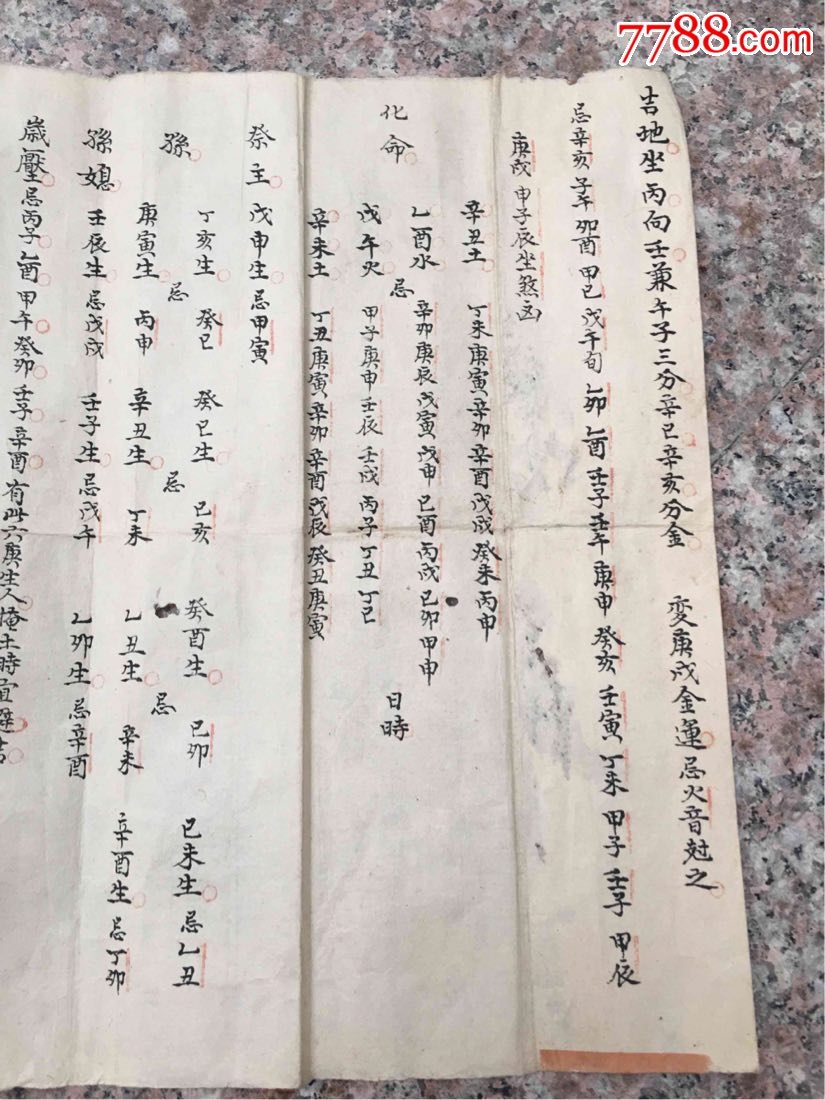 7788.com
吉地坐丙向壬兼午子三分辛巳辛亥分金 變庚戌金運忌火音尅之
忌辛亥 子午卯酉 甲巳 戊午旬 乙卯 乙酉 壬子 壬午 庚申 癸亥 壬寅 丁未 甲子 壬子 甲辰
庚戌 申子辰坐煞凶
辛丑土 丁未 庚寅 辛卯 辛酉 戊戌 癸未 丙申
乙酉水 辛卯 庚辰 戊寅 戊申 巳酉 丙戌 巳卯 甲申
化命 忌 日時
戊午火 甲子 庚申 壬辰 壬戌 丙子 丁丑 丁巳
辛未土 丁丑 庚寅 辛卯 辛酉 戊辰 癸丑 庚寅
祭主 戊申生 忌甲寅
丁亥生 癸巳 癸巳生 巳亥 癸酉生 巳卯 巳未生 忌乙丑
孫 忌 忌 忌
庚寅生 丙申 辛丑生 丁未 乙丑生 辛未 辛酉生 忌丁卯
孫媳 壬辰生 忌戊戌 壬子生 忌戊午 乙卯生 忌辛酉
歲壓忌丙子 乙酉 甲午 癸卯 壬子 辛酉 有此六庚生人掩土時宜避吉